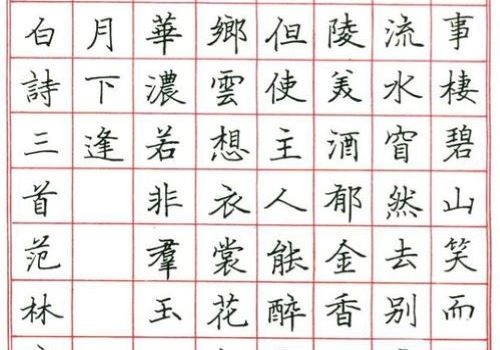 事棲碧山笑而
流水窅然去别
陵美酒郁金香
但使主人能醉
鄉雲想衣裳花
華濃若非羣玉
月下逢
白詩三首范林